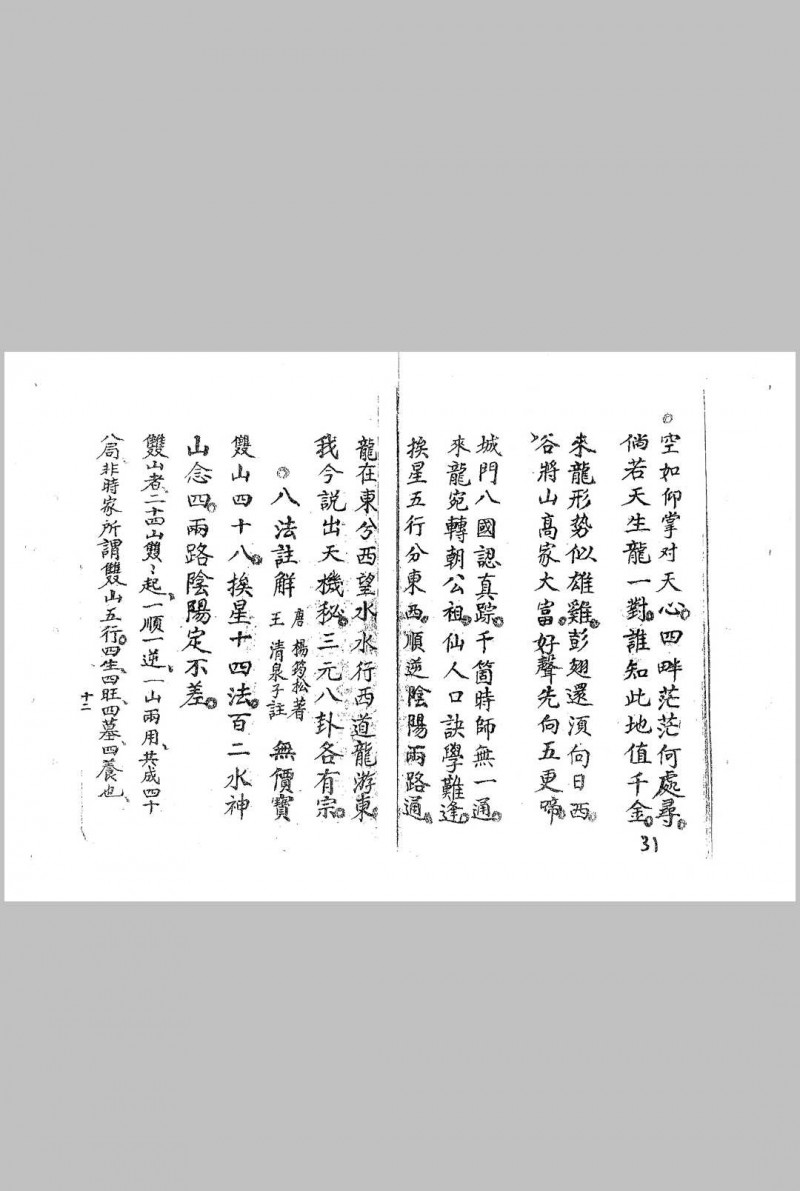 ◎空如仰掌对天心。四畔茫茫何處尋。
倘若天生龍一對。誰知此地值千金。
來龍形勢似雄雞。彭翅還須向日西。
谷將山高家大富。好聲先向五更啼。
城門八國認真踪。千箇時師無一通。
來龍宛轉朝公祖。仙人口訣學難逢。
挨星五行分東西。順逆陰陽兩路通。
31
龍在東兮西望水。水行西道龍游東。
我今説出天機秘。三元八卦各有宗。
◎八法註解 唐 楊筠松著 王 清泉子註 無價寶
雙山四十八。挨星十四法。百二水神
山念四。兩路陰陽定不差。
雙山者、二十四山雙〻起、一順一逆、一山兩用、共成四十
八局、非時家所謂雙山五行。四生、四旺、四墓、四養也、
十二